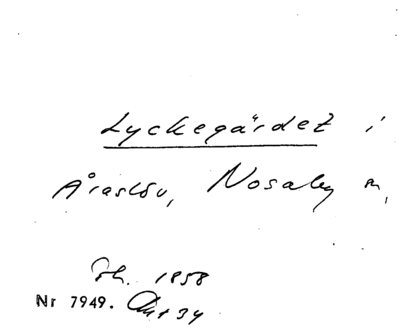 Lyckegärdet i
Åraslöv, Nosaby m,
1858
Nr 7949. Akt 34